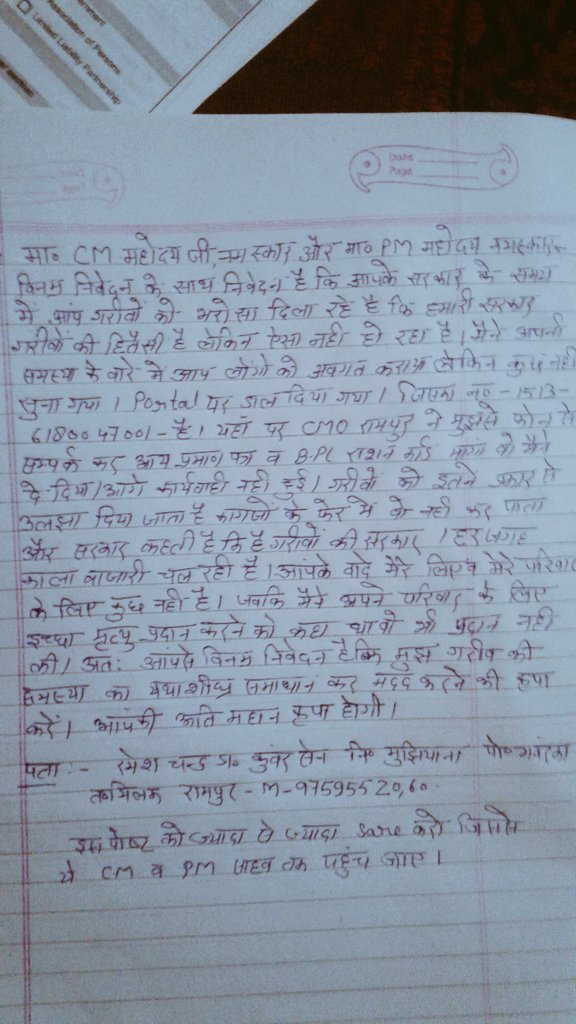 ernment
Association of Persons
Limited Liability Partnership
Date
Page
मा० CM महोदय जी, नमस्कार और मा० PM महोदय नमस्कार
विनम्र निवेदन के साथ निवेदन है कि आपके सरकार के समय
मे आप गरीवों को भरोसा दिला रहे है कि हमारी सरकार
गरीवों की हितैसी है लेकिन ऐसा नही हो रहा है। मैने अपनी
समस्या के वारे मे आप लोगो को अवगत कराया लेकिन कुछ नही
सुना गया। Portal पर डाल दिया गया। जिसका न० - 1513-
6180047001- है। यहाँ पर CMO रामपुर ने मुझसे फोन से
सम्पर्क कर आय प्रमाण पत्र व B.PL राशन कार्ड मांगा वो मैने
दे दिया। आगे कार्यवाही नही हुई। गरीवों को इतने प्रकार से
उलझा दिया जाता है कागजो के फेर में वो नही कर पाता
और सरकार कहती है कि है गरीवों की सरकार। हर जगह
काला वाजारी चल रही है। आपके वादे मेरे लिए व मेरे परिवार
के लिए कुछ नही है। जवकि मैने अपने परिवार के लिए
इच्छा मृत्यु प्रदान करने को कहा था वो भी प्रदान नही
की। अतः आपसे विनम्र निवेदन है कि मुझ गरीव की
समस्या का यथाशीघ्र समाधान कर मदद करने की कृपा
करें। आपकी अति महान कृपा होगी।
पता :- रमेश चन्द्र S/० कुंवर सेन नि० मुझियाना पो०
रामपुर - M-97595520,60.
इस पोस्ट को ज्यादा से ज्यादा Sare करो जिससे
ये CM व PM तक पहुंच जाए।